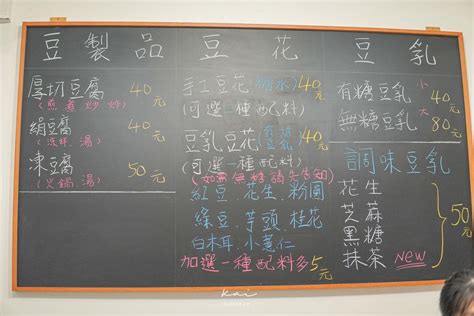 豆製品
厚切豆腐 40元
(煎煮炒炸)
絹豆腐 40元
(涼拌.湯)
凍豆腐 50元
(火鍋.湯)
豆花
手工豆花(糖水)40元
(可選一種配料)
豆乳豆花(豆漿)40元
(可選一種配料)
(如需無糖請先告知)
紅豆、花生、粉圓
綠豆、芋頭、桂花
白木耳、小薏仁
加選一種配料多5元
豆乳
有糖豆乳 小 40元
無糖豆乳 大 80元
調味豆乳
花生
芝蔴
黑糖
抹茶 NEW
50元
Kai